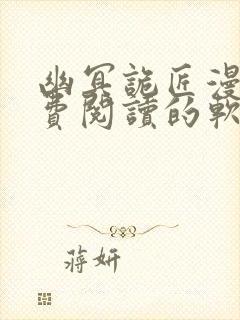 幽冥詭匠漫
費閱讀的軟
蔣妍